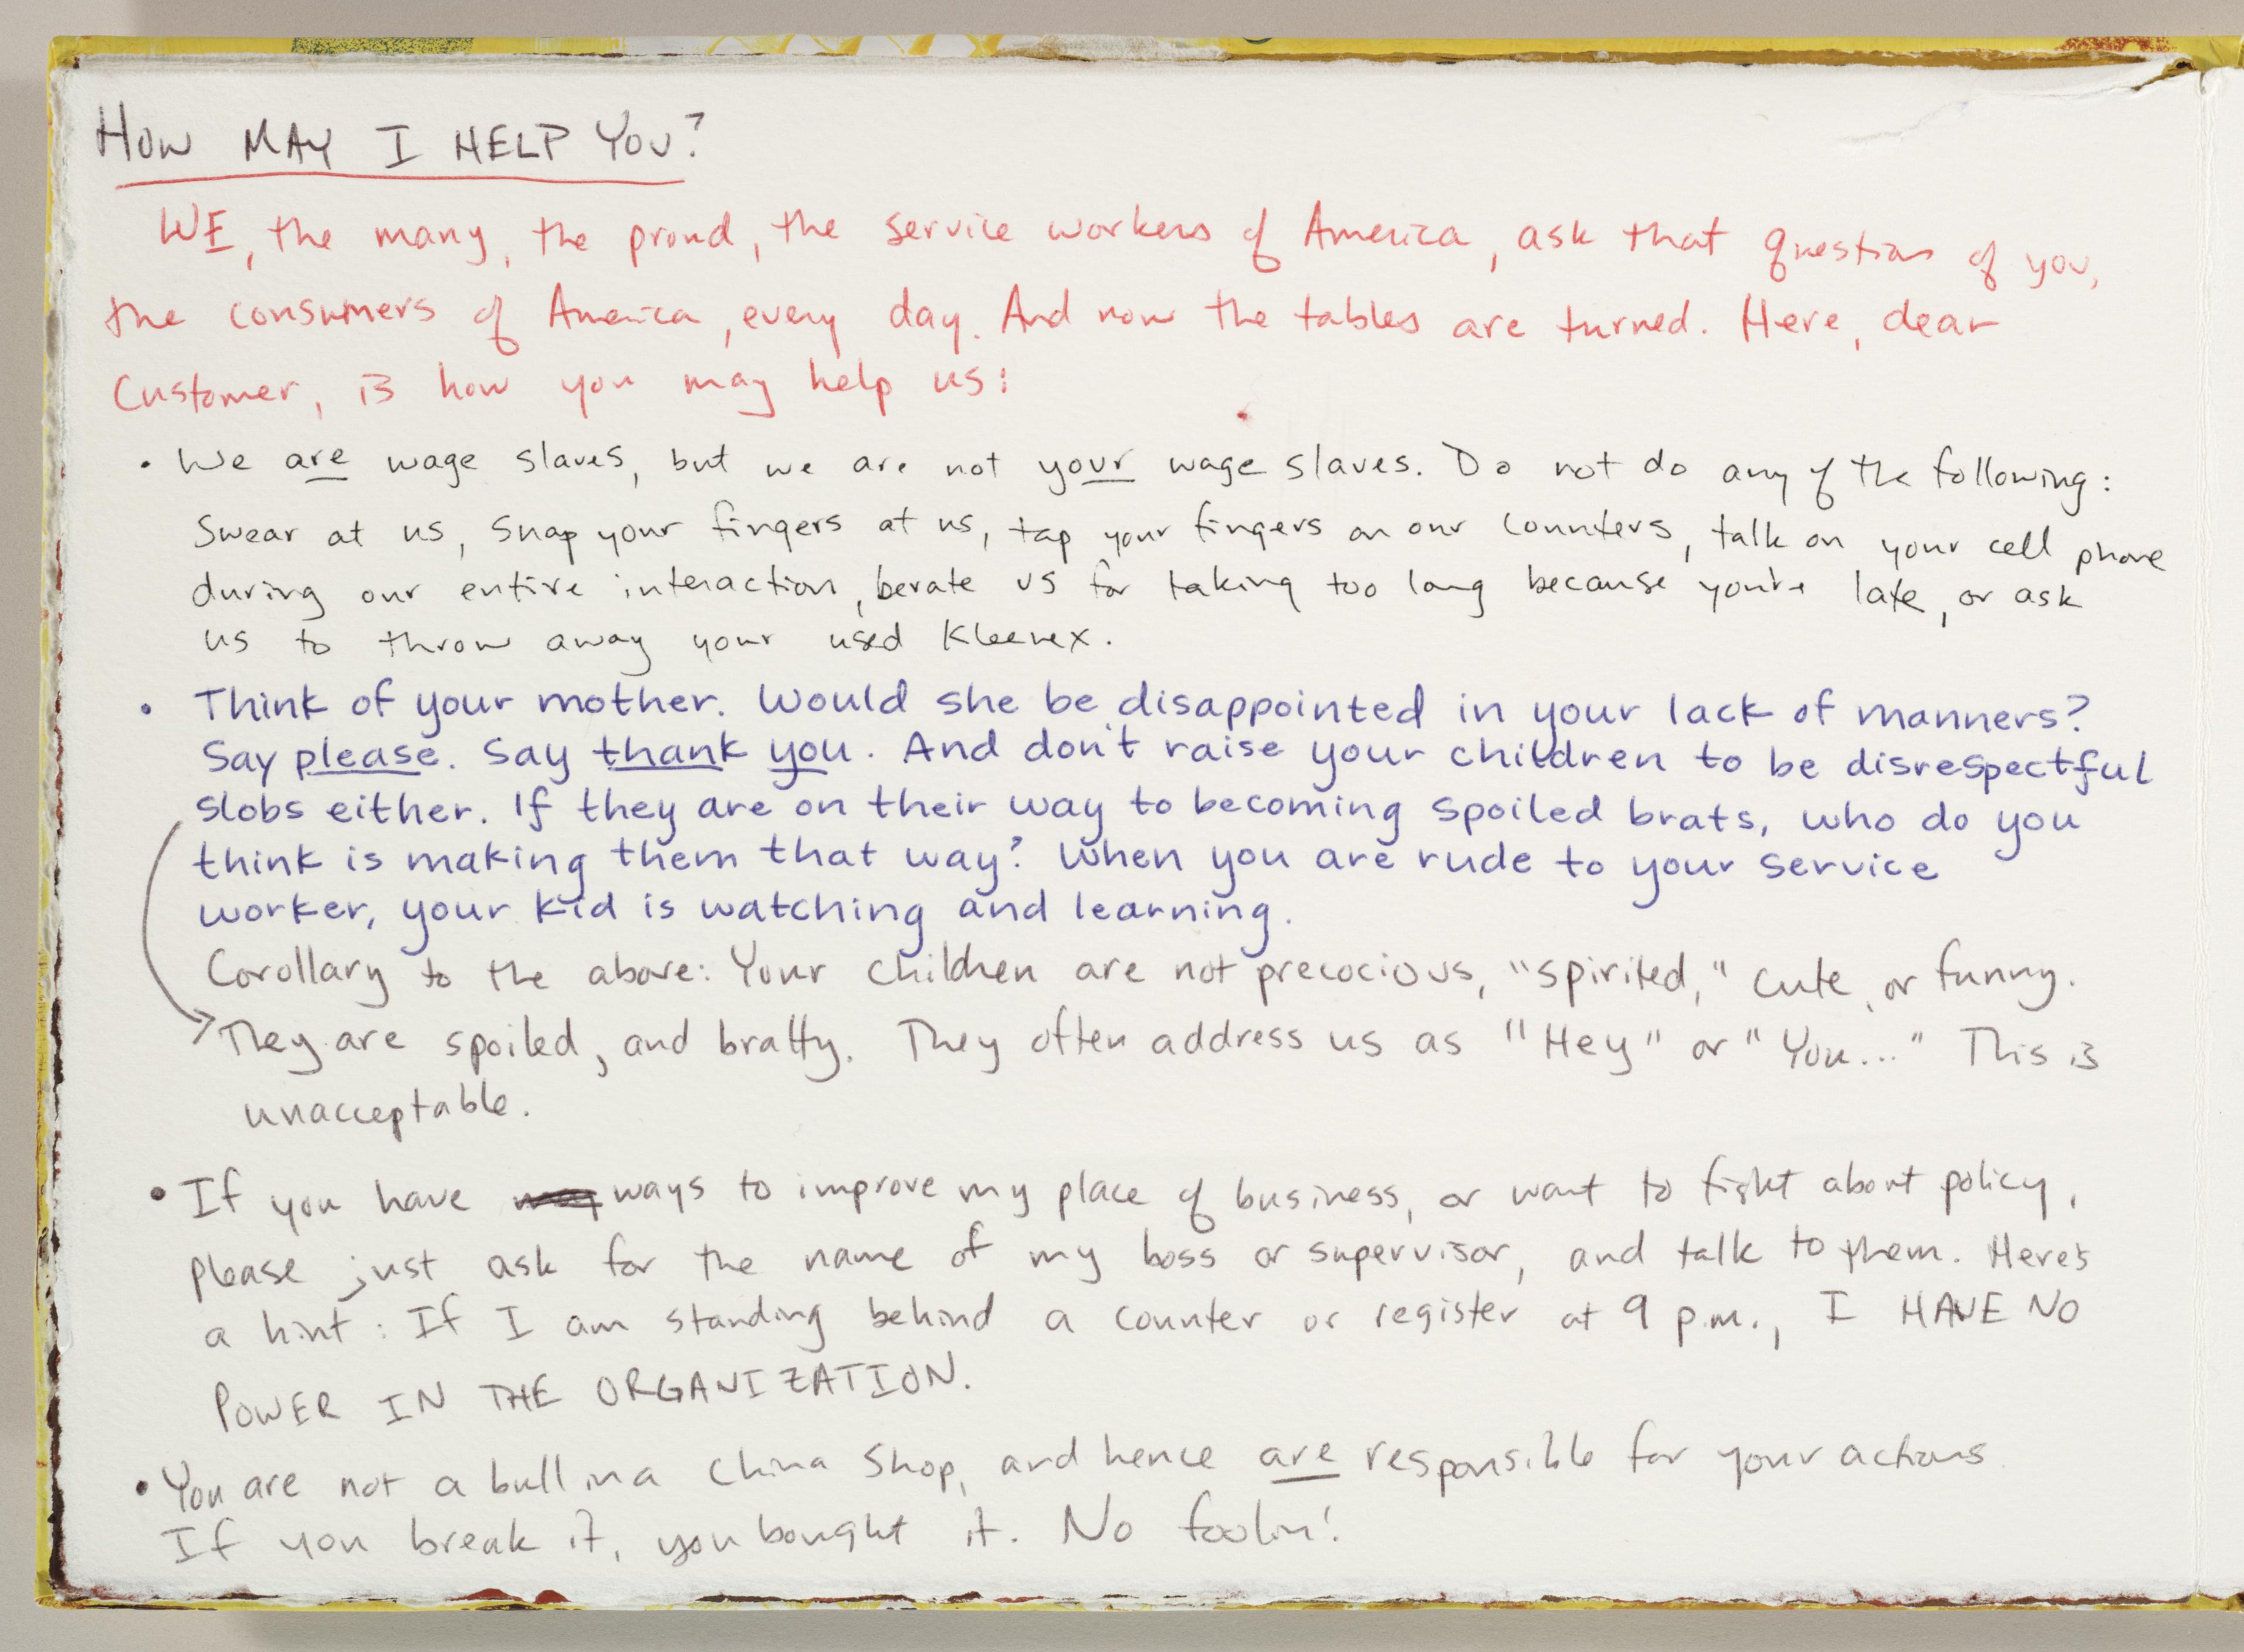 HOW MAY I HELP YOU?
WE, the many, the proud, the service workers of America, ask that question of you,
the consumers of America, every day. And now the tables are turned. Here, dear
Customer, is how you may help us:
• We are wage slaves, but we are not your wage slaves. Do not do any of the following:
Swear at us, snap your fingers at us, tap your fingers on our counters, talk on your cell phone
during our entire interaction, berate us for taking too long because you're late, or ask
us to throw away your used Kleenex.
• Think of your mother. Would she be disappointed in your lack of manners?
Say please. Say thank you. And don't raise your children to be disrespectful
slobs either. If they are on their way to becoming spoiled brats, who do you
think is making them that way? When you are rude to your service
worker, your kid is watching and learning.
Corollary to the above: Your children are not precocious, "spirited," cute, or funny.
They are spoiled, and bratty. They often address us as "Hey" or "You..." This is
unacceptable.
• If you have ways to improve my place of business, or want to fight about policy,
please just ask for the name of my boss or supervisor, and talk to them. Here's
a hint: If I am standing behind a counter or register at 9 p.m., I HAVE NO
POWER IN THE ORGANIZATION.
• You are not a bull in a China Shop, and hence are responsible for your actions.
If you break it, you bought it. No foolin'!